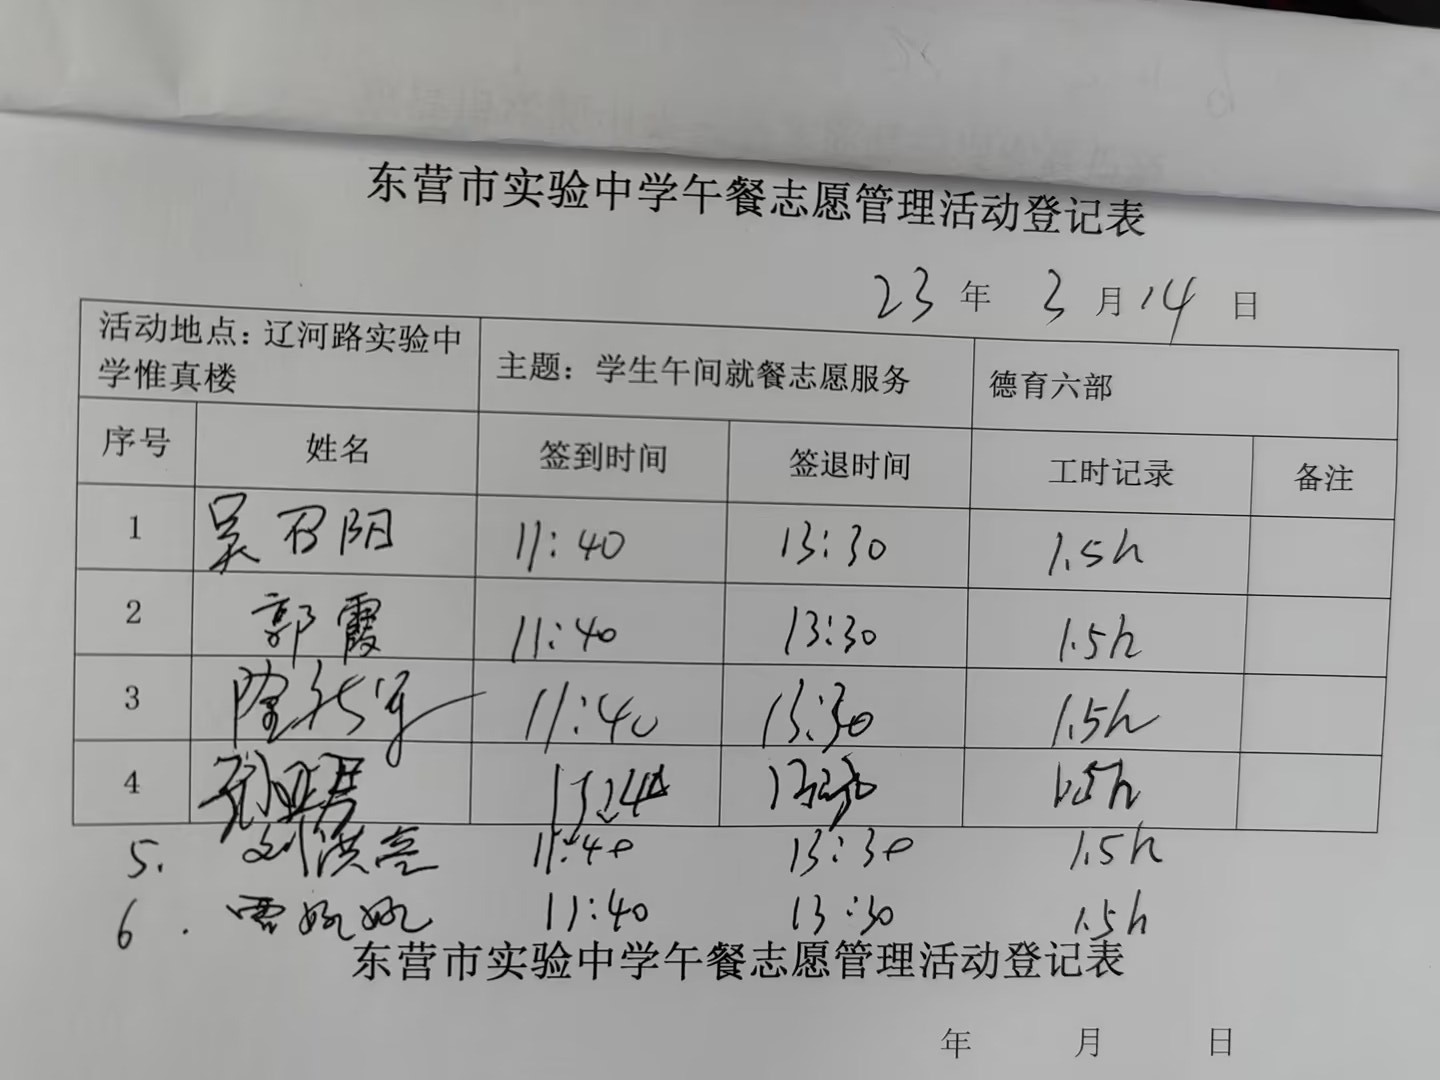 东营市实验中学午餐志愿管理活动登记表
23 年 3 月 14 日
活动地点：辽河路实验中学惟真楼 主题：学生午间就餐志愿服务 德育六部
序号 姓名 签到时间 签退时间 工时记录 备注
1 吴召阳 11:40 13:30 1.5h
2 郭霞 11:40 13:30 1.5h
3 11:40 13:30 1.5h
4 1.5h
5. 刘洪亮 11:40 13:30 1.5h
6. 11:40 13:30 1.5h
东营市实验中学午餐志愿管理活动登记表
年 月 日